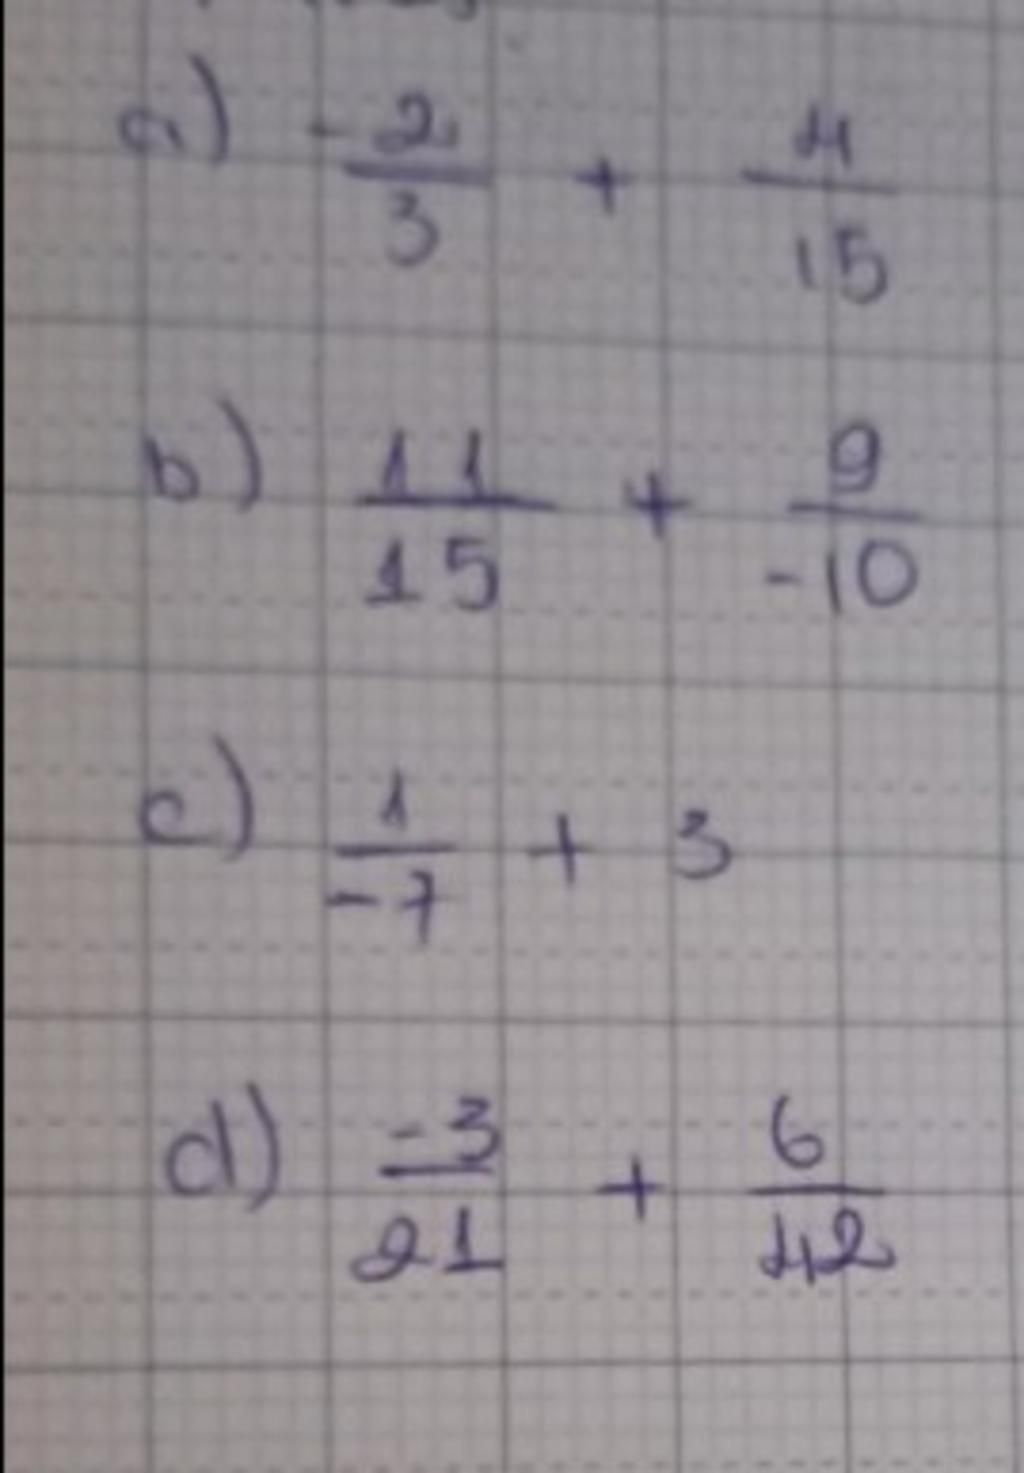 a) -2/3 + 4/15
b) 11/15 + 9/-10
c) 1/-7 + 3
d) -3/21 + 6/42